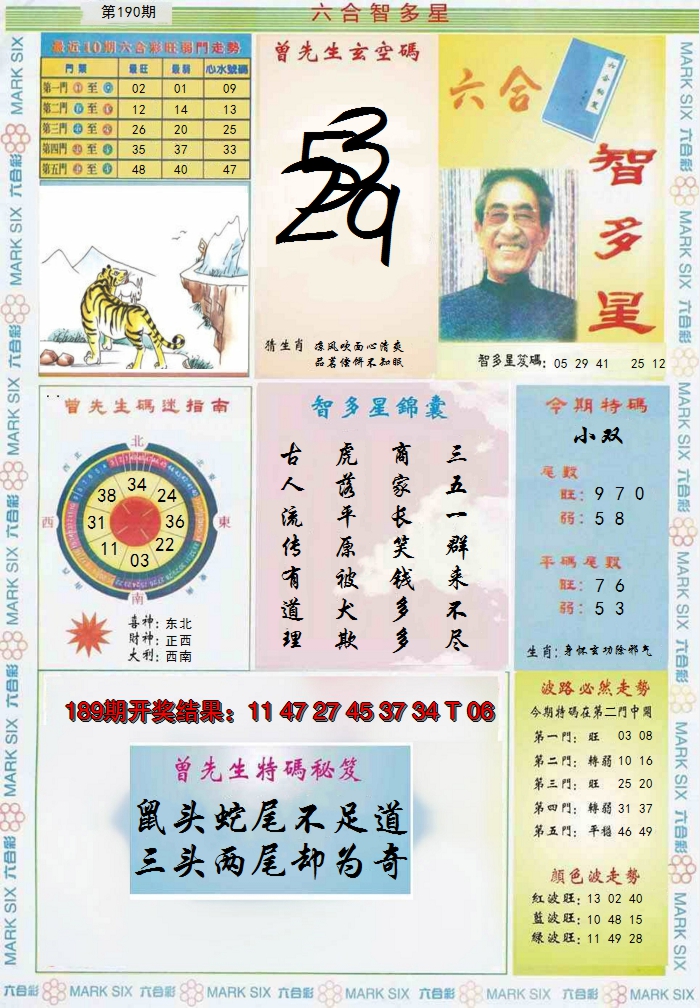 第190期
六合智多星
最近10期六合彩旺弱門走勢
門類 最旺 最弱 心水號碼
第一門 至 02 01 09
第二門 至 12 14 13
第三門 至 26 20 25
第四門 至 35 37 33
第五門 至 48 40 47
曾先生玄空碼
猜生肖 凉风吹面心清爽
品茗馋饼不知眠
六合
智多星
智多星笈碼: 05 29 41 25 12
曾先生碼迷指南
北
西
東
南
38 34 24
31 36
11 03 22
喜神: 东北
財神: 正西
大利: 西南
智多星錦囊
三五一群来不尽
商家长笑钱多多
虎落平原被犬欺
古人流传有道理
今期特碼
小双
尾數
旺: 9 7 0
弱: 5 8
平碼尾數
旺: 7 6
弱: 5 3
生肖: 身怀玄功除邪气
189期开奖结果: 11 47 27 45 37 34 T 06
曾先生特碼秘笈
鼠头蛇尾不足道
三头两尾却为奇
波路必然走勢
今期特碼在第二門中開
第一門: 旺 03 08
第二門: 轉弱 10 16
第三門: 旺 25 20
第四門: 轉弱 31 37
第五門: 平穩 46 49
顔色波走勢
紅波旺: 13 02 40
藍波旺: 10 48 15
绿波旺: 11 49 28
六合彩 MARK SIX 六合彩 MARK SIX 六合彩 MARK SIX 六合彩 MARK SIX 六合彩